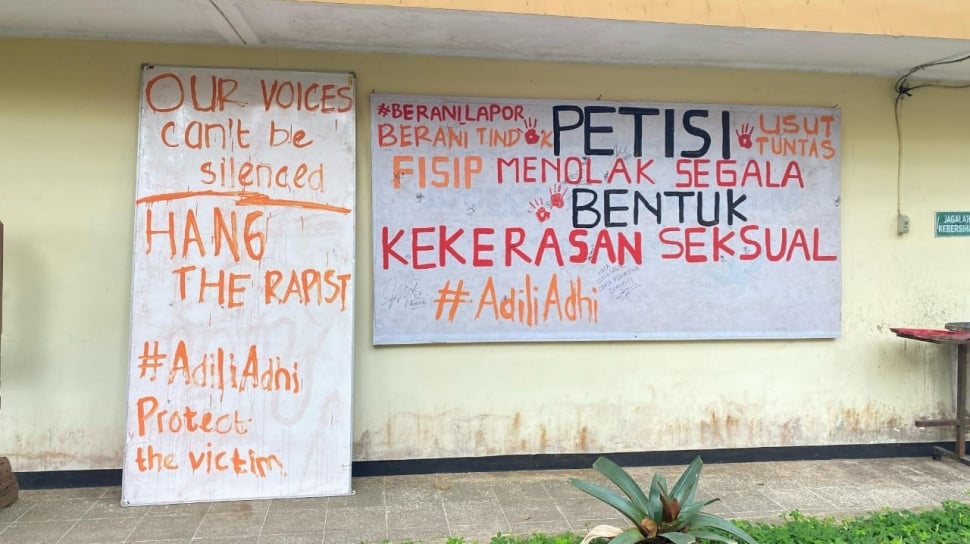 OUR VOICES
can't be
silenced
HANG
THE RAPIST
#AdiliAdhi
Protect
the victim
#BERANILAPOR
BERANI TINDAK
PETISI
USUT
TUNTAS
FISIP MENOLAK SEGALA
BENTUK
KEKERASAN SEKSUAL
#AdiliAdhi
JAGALAH
KEBERSIHAN